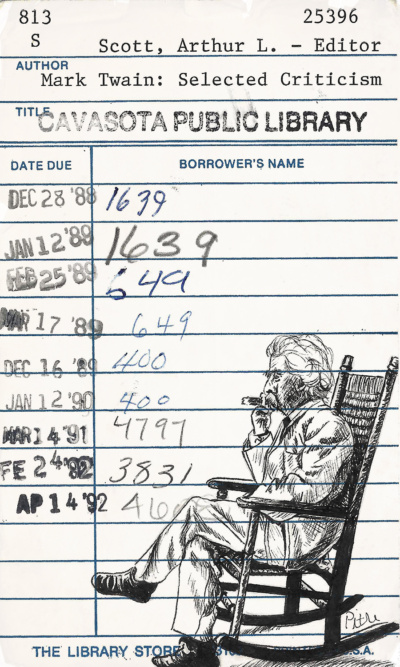 813 25396
S Scott, Arthur L. - Editor
AUTHOR
Mark Twain: Selected Criticism
TITLE
CAVASOTA PUBLIC LIBRARY
DATE DUE BORROWER'S NAME
DEC 28 '88 1639
JAN 12 '89 1639
FEB 25 '89 649
MAR 17 '89 649
DEC 16 '89 400
JAN 12 '90 400
MAR 14 '91 4797
FE 24 '92 3831
AP 14 '92
Petri
THE LIBRARY STORE U.S.A.